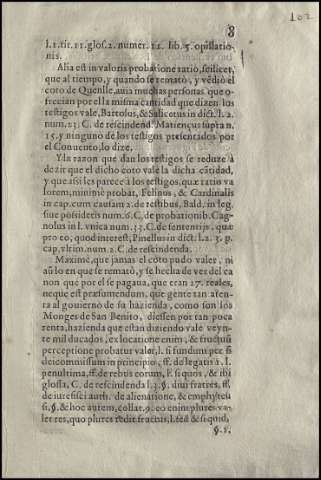 102
8
l.1.tit.11.glos.2. numer. 12. lib. 5. opilatio-
nis.
Alia est in valoris probatione ratio, scilicet,
que al tiempo, y quando se remató, y vēdió el
coto de Quenlle, auia muchas personas que o-
frecian por ella misma cantidad que dizen los
testigos vale, Bartolus, & Salicetus in dict. l. 2.
num. 23. C. de rescindend. Matiençus supra n.
15. y ninguno de los testigos presentados por
el Conuento, lo dize.
Y la razon que dan los testigos se reduze à
dezir que el dicho coto vale la dicha cātidad,
y que assi les parece à los testigos, quæ ratio va
lorem, minimè probat, Felinus, & Cardinalis
in cap. cum causam 2. de testibus, Bald. in leg.
siue possidetis num. 6. C. de probationib. Cag-
nolus in l. vnica num. 33. C. de sententijs, quæ
pro eo, quod interest, Pinellus in dict. l. 2. 3. p.
cap. vltim. num. 2. C. de rescindenda.
Maximè, que jamas el coto pudo valer, ni
aū lo en que se remató, y se hecha de ver del ca
non que por el se pagaua, que eran 27. reales,
neque est præsumendum, que gente tan aten-
ta al gouierno de su hazienda, como son los
Monges de San Benito, diessen por tan poca
renta, hazienda que están diziendo vale veyn-
te mil ducados, ex locatione enim, & fructuū
perceptione probatur valor, l. si fundum per fi
deicommissum in principio, ff. de legatis 1. l.
penultima, ff. de rebus eorum, l. si quos, & ibi
glossa, C. de rescindenda l. 3. §. diui fratres, ff.
de iure fisci auth. de alienatione, & emphyteu
si, §. & hoc autem, collat. 9. eo enim plures va-
let res, quo plures reddit fructus, l. sed & si quid,
§. 1.